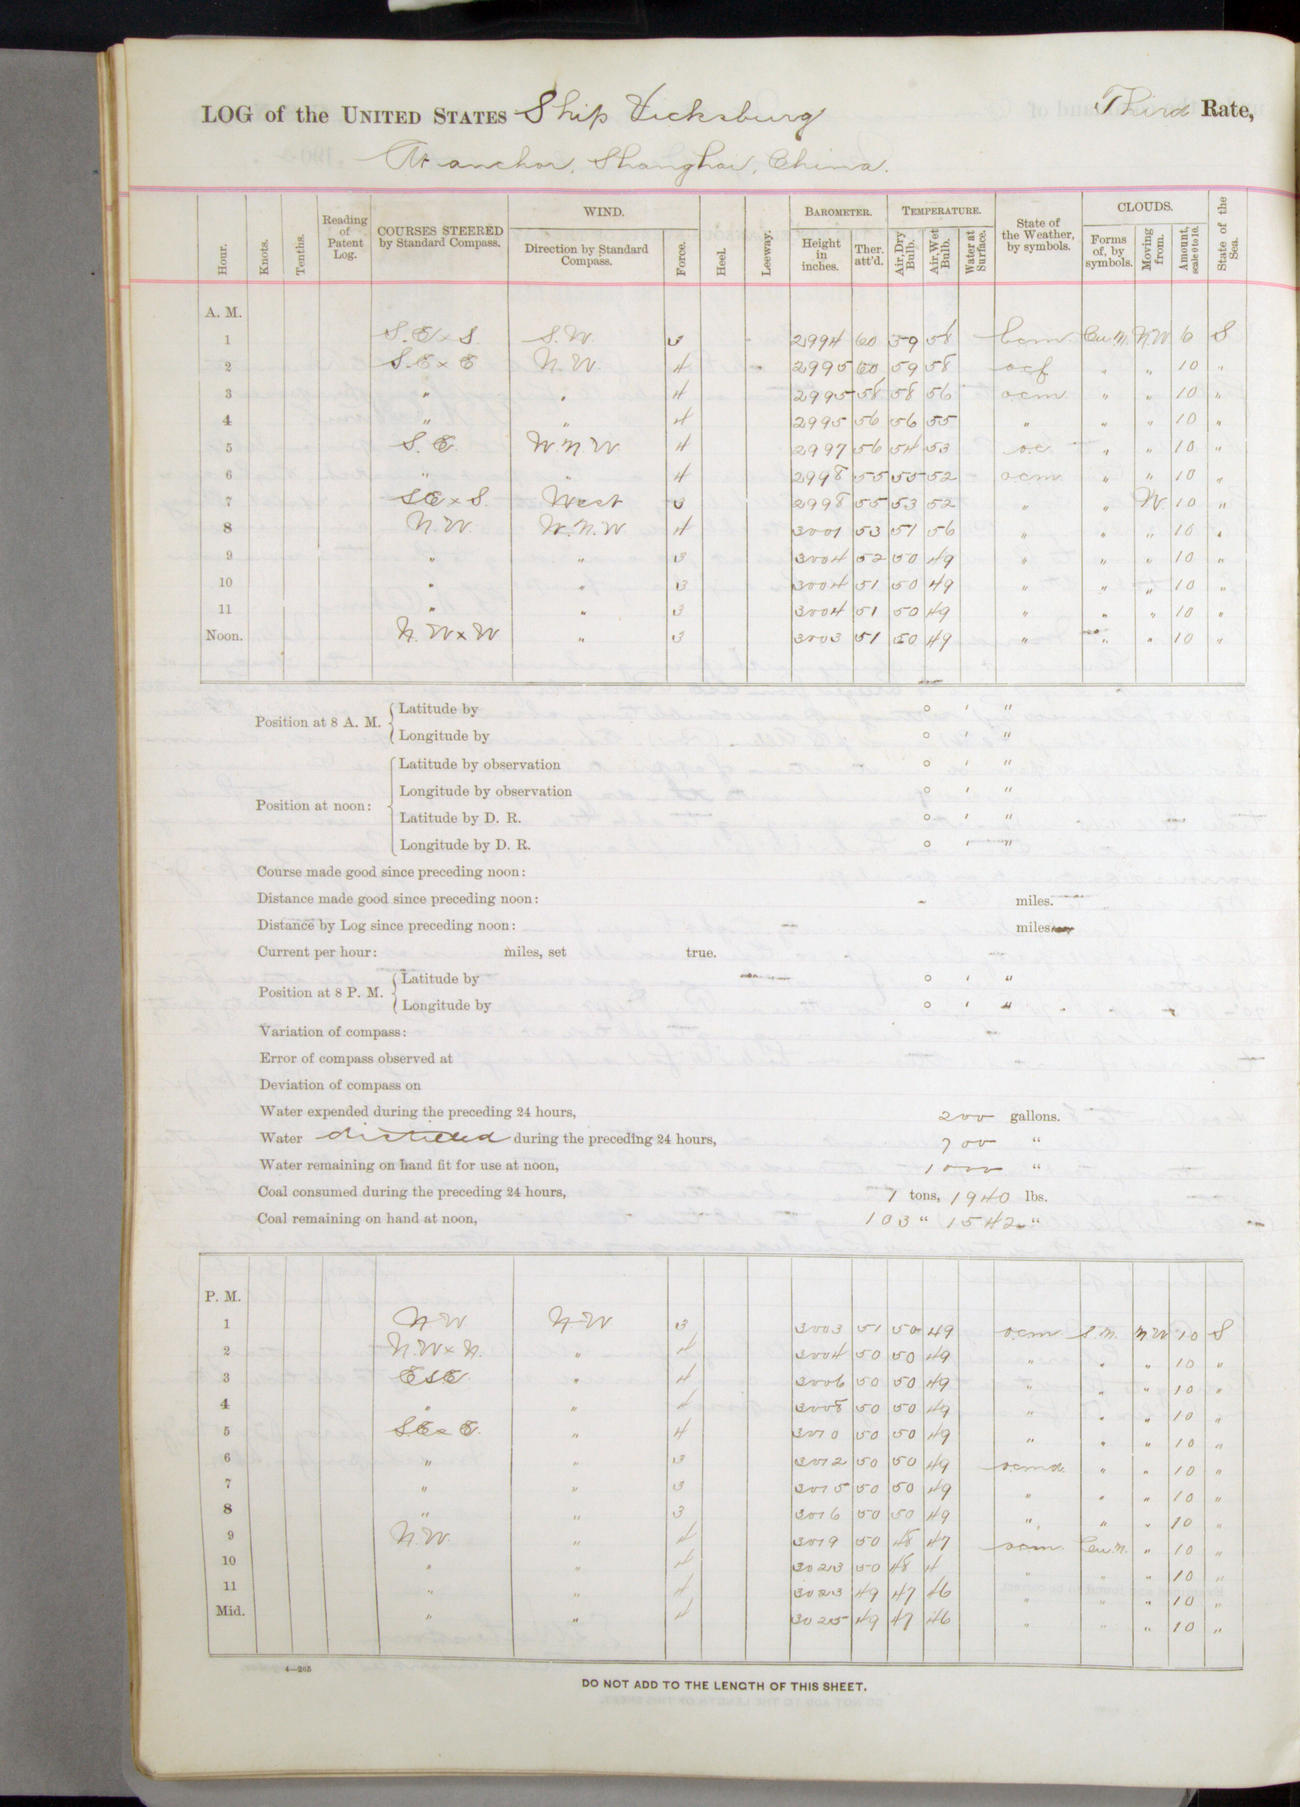 LOG of the UNITED STATES Ship Vicksburg Third Rate,
At anchor, Shanghai, China.
Hour. Knots. Tenths. Reading of Patent Log. COURSES STEERED by Standard Compass. WIND. Direction by Standard Compass. Force. Heel. Leeway. BAROMETER. Height in inches. Ther. att'd. TEMPERATURE. Air, Dry Bulb. Air, Wet Bulb. Water at Surface. State of the Weather, by symbols. CLOUDS. Forms of, by symbols. Moving from. Amount, scale 0 to 10. State of the Sea.
A. M.
1 S.E x S. S.W. 3 2994 60 59 58 bcm Cu.N. N.W. 6 S
2 S.E x E N.W. 4 2995 60 59 58 ocf " " 10 "
3 " " 4 2995 58 58 56 ocm " " 10 "
4 " " 4 2995 56 56 55 " " " 10 "
5 S.E. W.N.W 4 2997 56 54 53 oc " " 10 "
6 " " 4 2998 55 55 52 ocm " " 10 "
7 SE x S. West 3 2998 55 53 52 " " W. 10 "
8 N.W. W.N.W 4 3001 53 51 56 " " " 10 "
9 " " 3 3004 52 50 49 " " " 10 "
10 " " 3 3004 51 50 49 " " " 10 "
11 " " 3 3004 51 50 49 " " " 10 "
Noon. N.W x W " 3 3003 51 50 49 " " " 10 "
Position at 8 A. M. Latitude by ° ' "
Longitude by ° ' "
Position at noon: Latitude by observation ° ' "
Longitude by observation ° ' "
Latitude by D. R. ° ' "
Longitude by D. R. ° ' "
Course made good since preceding noon:
Distance made good since preceding noon: miles.
Distance by Log since preceding noon: miles
Current per hour: miles, set true.
Position at 8 P. M. Latitude by ° ' "
Longitude by ° ' "
Variation of compass:
Error of compass observed at
Deviation of compass on
Water expended during the preceding 24 hours, 200 gallons.
Water distilled during the preceding 24 hours, 700 "
Water remaining on hand fit for use at noon, 1000 "
Coal consumed during the preceding 24 hours, 7 tons, 1940 lbs.
Coal remaining on hand at noon, 103 " 1542 "
P. M.
1 N.W N.W 3 3003 51 50 49 ocm S.N. N.W 10 S
2 N.W x N. " 4 3004 50 50 49 " " " 10 "
3 ESE. " 4 3006 50 50 49 " " " 10 "
4 " " 4 3008 50 50 49 " " " 10 "
5 SE x E. " 4 3010 50 50 49 " " " 10 "
6 " " 3 3012 50 50 49 ocmd " " 10 "
7 " " 3 3015 50 50 49 " " " 10 "
8 " " 3 3016 50 50 49 " " " 10 "
9 N.W. " 4 3019 50 48 47 ocm Cu.N. " 10 "
10 " " 4 3023 50 48 4 " " " 10 "
11 " " 4 3023 49 47 46 " " " 10 "
Mid. " " 4 3025 49 47 46 " " " 10 "
4—265
DO NOT ADD TO THE LENGTH OF THIS SHEET.